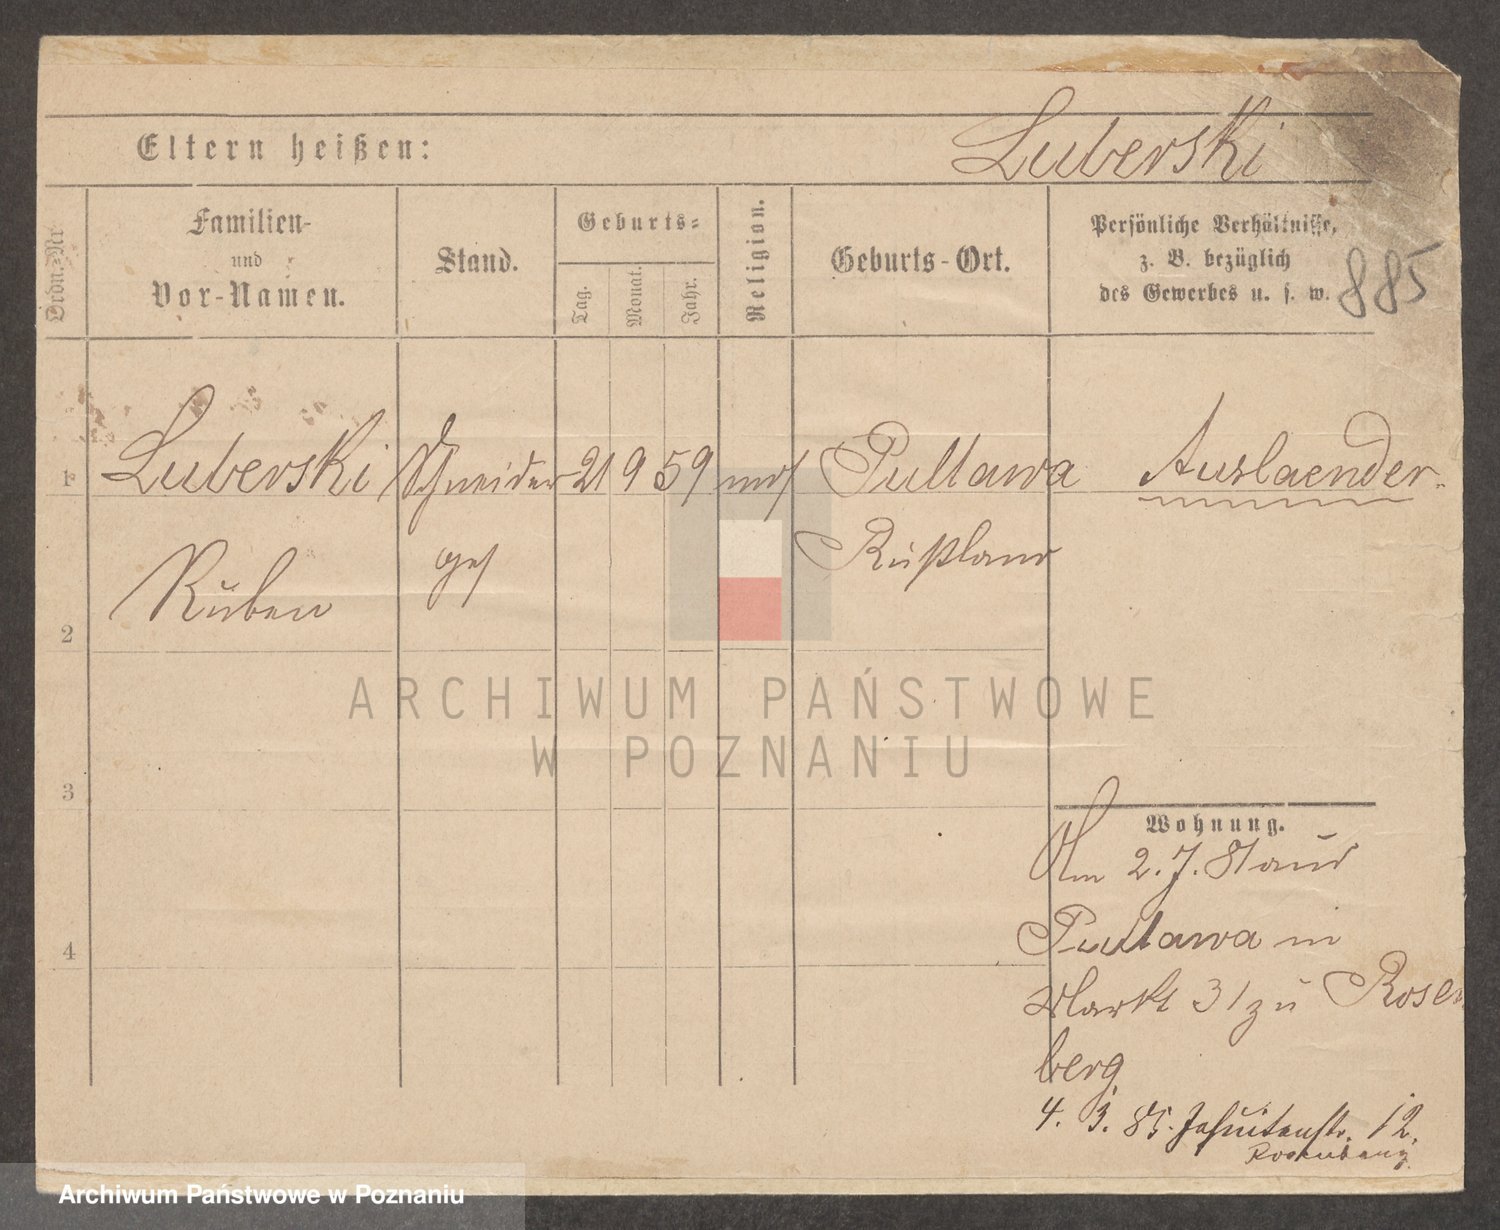 Luberski
Eltern heißen:
Ordn.-Nr
Familien-
und
Vor-Namen.
Stand.
Geburts-
Tag.
Monat.
Jahr.
Religion.
Geburts-Ort.
Persönliche Verhältnisse,
z. B. bezüglich
des Gewerbes u. s. w.
885
1 Luberski Schneider 21 9 59 mos Pultawa Auslaender
Ruben ges Rußland
2
3
4
Wohnung.
Am 2. 7. 81 aus
Pultawa in
Markt 31 zu Rosen
berg
4. 3. 85. Jesuitenstr. 12.
Rosenberg
ARCHIWUM PAŃSTWOWE
W POZNANIU
Archiwum Państwowe w Poznaniu